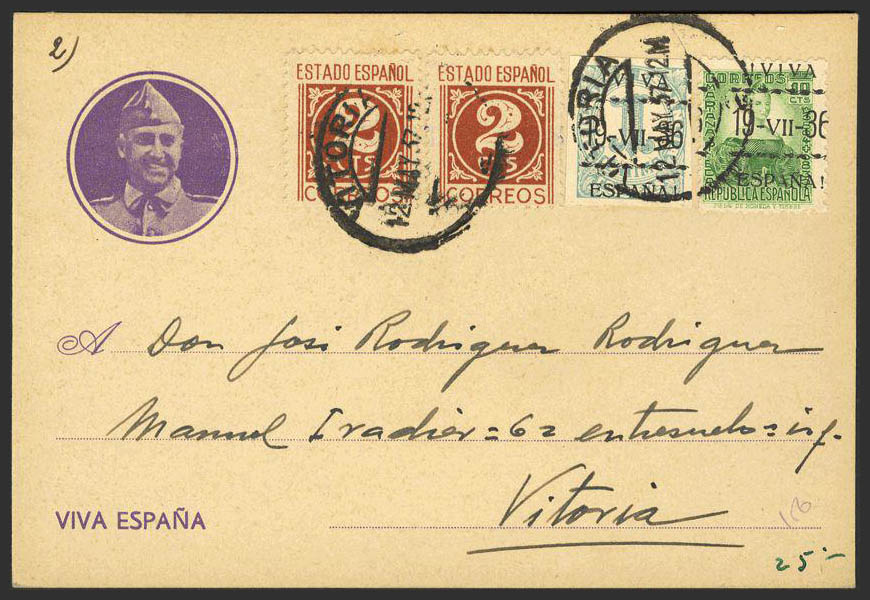 2)
ESTADO ESPAÑOL
2
CTS
CORREOS
ESTADO ESPAÑOL
2
CTS
CORREOS
VIVA
19-VII-36
ESPAÑA!
¡VIVA
CORREOS
10
CTS
19-VII-36
ESPAÑA!
REPUBLICA ESPAÑOLA
VITORIA
12 MAY. 37
VITORIA
12 MAY. 37 2.M
A Don José Rodriguez Rodriguez
Manuel Iradier = 62 entresuelo = izq.
Vitoria
VIVA ESPAÑA
25:-